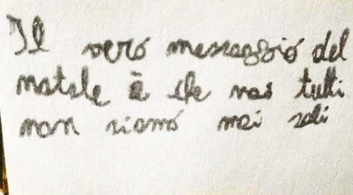 Il vero messaggio del
natale è che noi tutti
non siamo mai soli